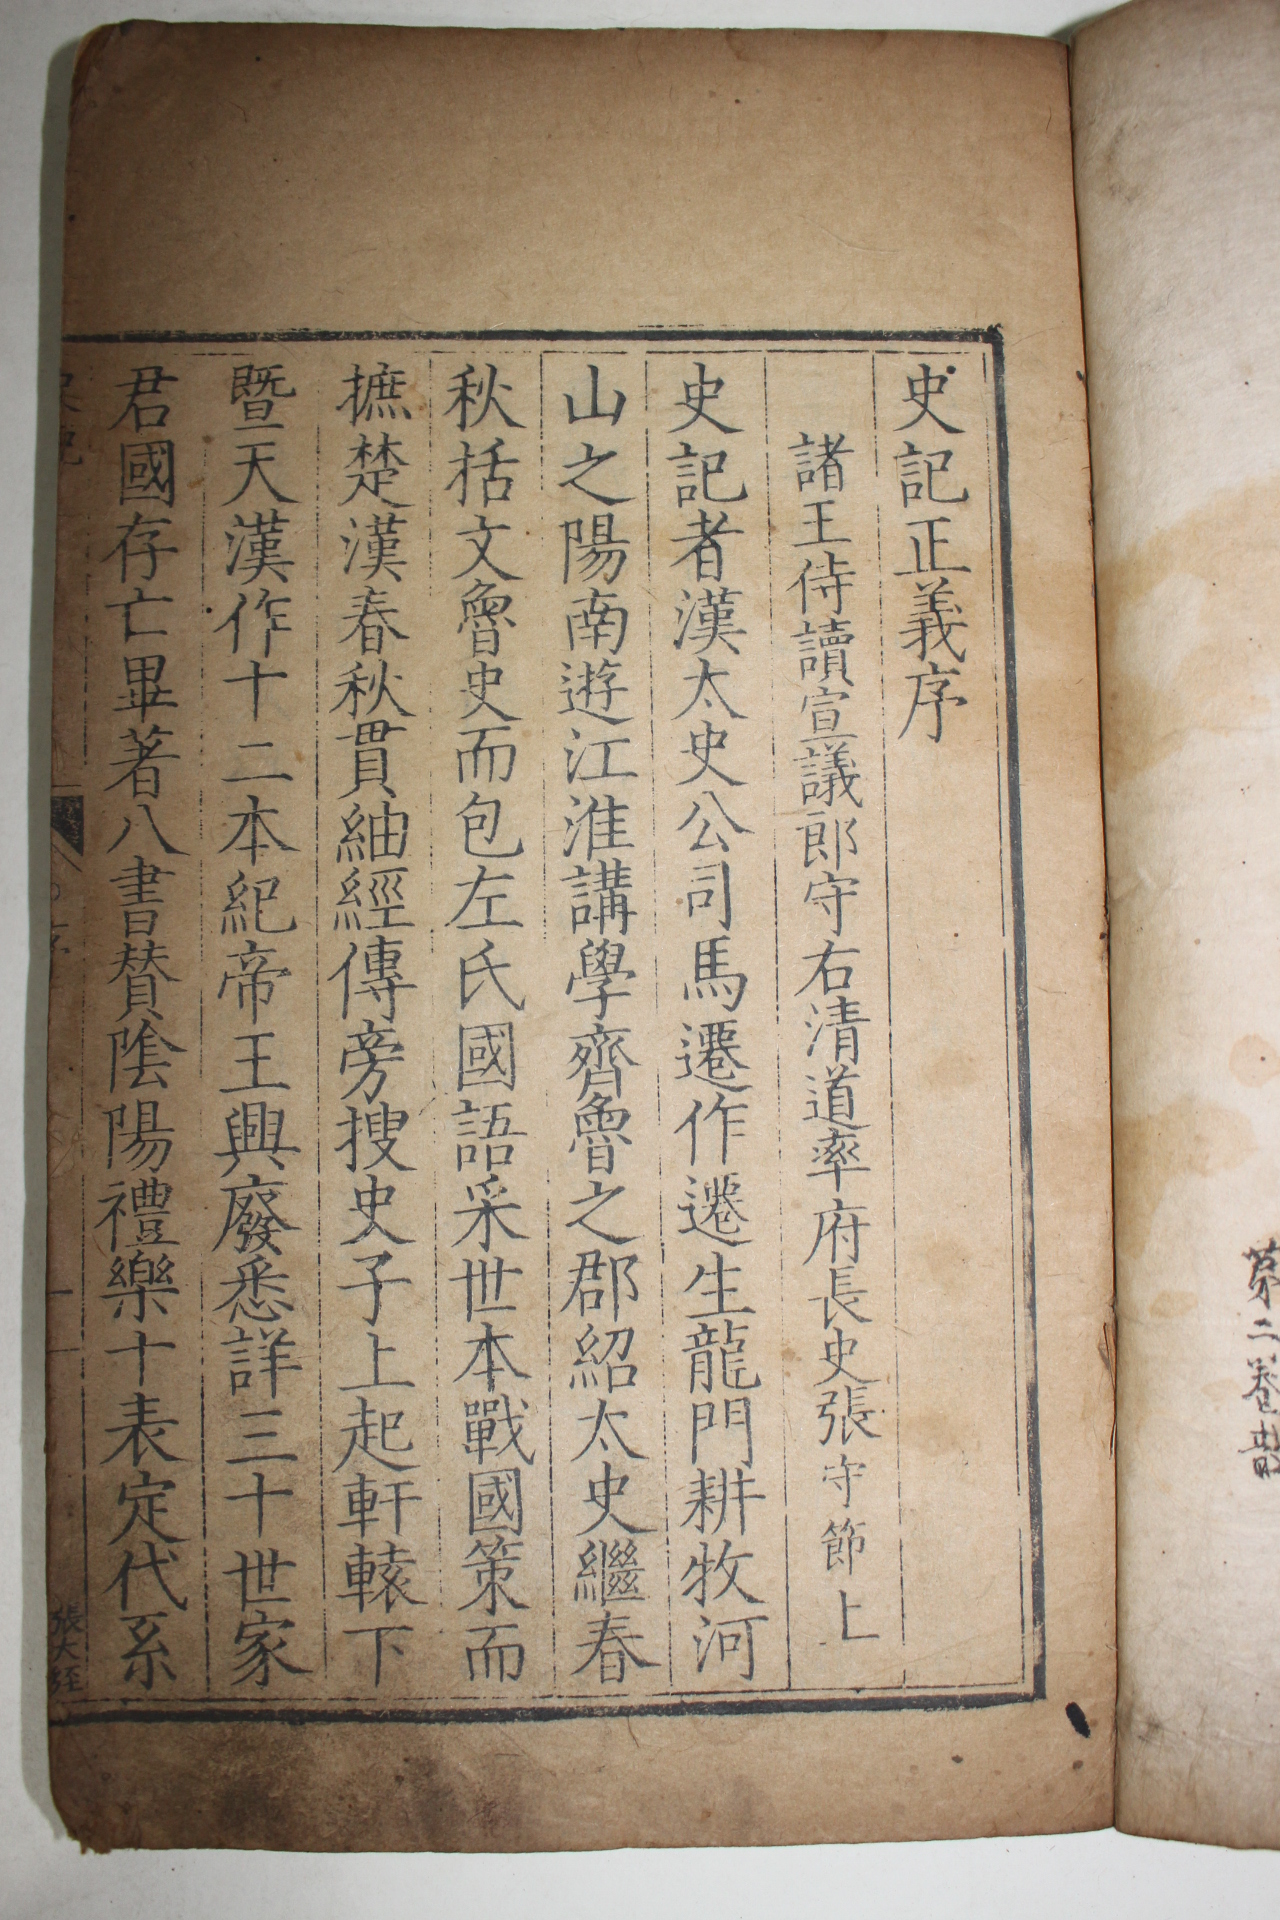 史記正義序
諸王侍讀宣議郎守右清道率府長史張守節上
史記者漢太史公司馬遷作遷生龍門耕牧河
山之陽南遊江淮講學齊魯之郡紹太史繼春
秋括文魯史而包左氏國語采世本戰國策而
摭楚漢春秋貫紬經傳旁搜史子上起軒轅下
暨天漢作十二本紀帝王興廢悉詳三十世家
君國存亡畢著八書賛陰陽禮樂十表定代系
張大經
第二卷